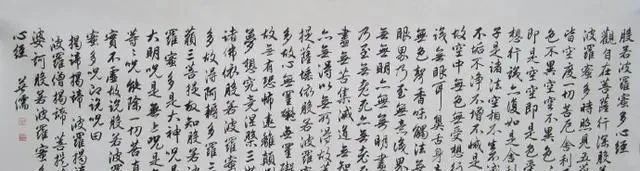 般若波羅蜜多心經
觀自在菩薩行深般若
波羅蜜多時照見五
皆空度一切苦厄舍利
色不異空空不異色
即是空空即是色
想行識亦復如是舍利
子是諸法空相不生不滅
不垢不淨不增不減
故空中無色無受想行
識無眼耳鼻舌身意
無色聲香味觸法無
眼界乃至無意識界
無無明亦無無明盡
乃至無老死亦無老死
盡無苦集滅道無智
亦無得以無所得故菩
提薩埵依般若波羅蜜
多故心無罣礙無罣礙
故無有恐怖遠離顛倒
夢想究竟涅槃三世
諸佛依般若波羅蜜
多故得阿耨多羅三
藐三菩提故知般若波
羅蜜多是大神咒是
大明咒是無上咒是無
等等咒能除一切苦真
實不虛故說般若波羅
蜜多咒即說咒曰
揭諦揭諦 波羅揭諦
波羅僧揭諦 菩提
婆訶般若波羅蜜多
心經